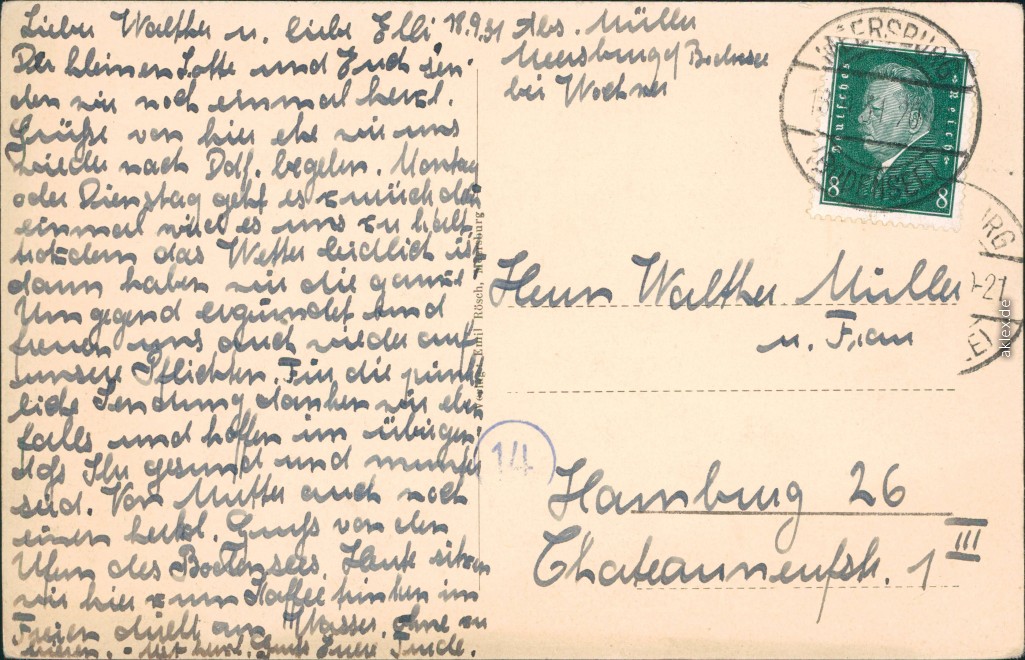 Lieber Walther u. liebe Elli 18.9.31
Der kleinen Lotte und Euch sen-
den wir noch einmal herzl.
Grüße von hier ehe wir uns
wieder nach Ddf. begeben. Montag
oder Dienstag geht es zurück denn
einmal wird es uns zu kalt
trotzdem das Wetter leidlich ist
dann haben wir die ganze
Umgegend ergründet und
freuen uns auch wieder auf
unsere Pflichten. Für die pünkt-
liche Sendung danken wir eben-
falls und hoffen im übrigen
daß Ihr gesund und munter
seid. Von Mutter auch noch
einen herzl. Gruß von den
Ufern des Bodensees. Heute sitzen
wir hier zum Kaffee trinken im
Freien direkt am Wasser, ohne zu
frieren. - Mit herzl. Gruß Eure
Abs. Müller
Meersburg / Bodensee
bei Wochner
Verlag Emil Rösch, Meersburg
MEERSBURG
(BODENSEE)
Deutsches Reich
8 8
Herrn Walther Müller
u. Frau
14
Hamburg 26
Chateauneufstr. 1 III
aklex.de